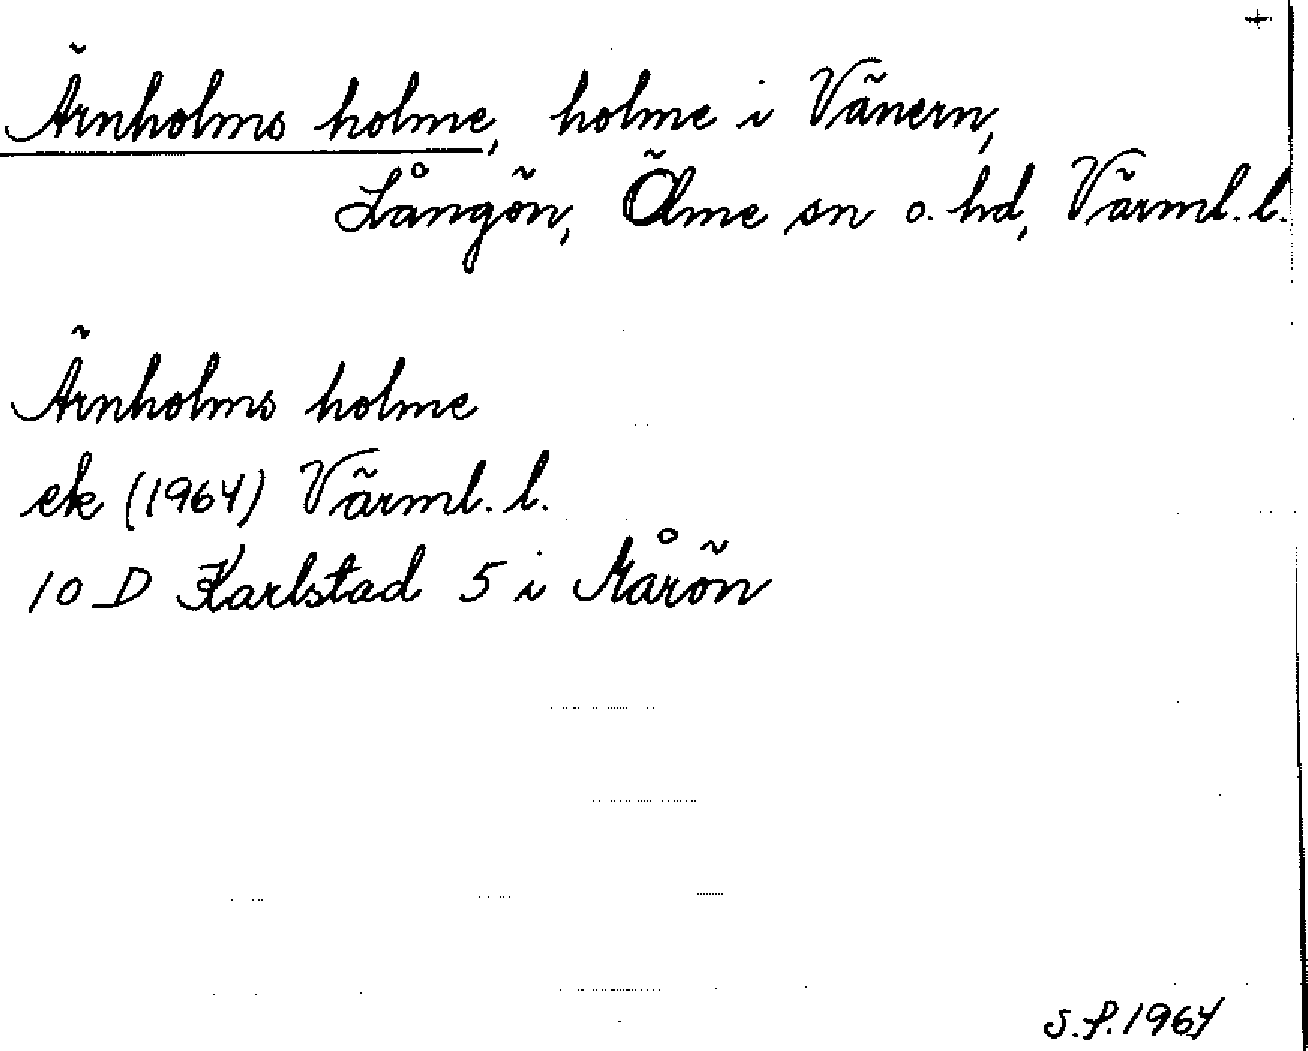 +
Ärnholms holme, holme i Vänern,
Långön, Ölme sn o. hd, Värml. l.
Ärnholms holme
ek (1964) Värml. l.
10 D Karlstad 5 i Mårön
S.f. 1964